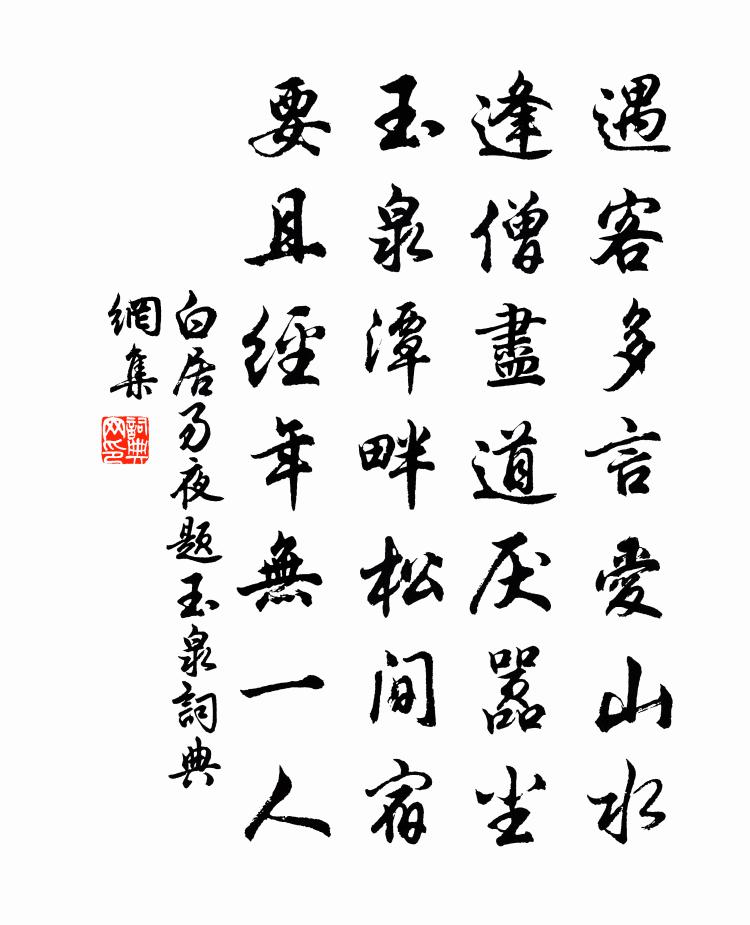 遇客多言愛山水
逢僧盡道厌囂尘
玉泉潭畔松間宿
要且經年無一人
白居易夜题玉泉詞典
網集
詞典
网印